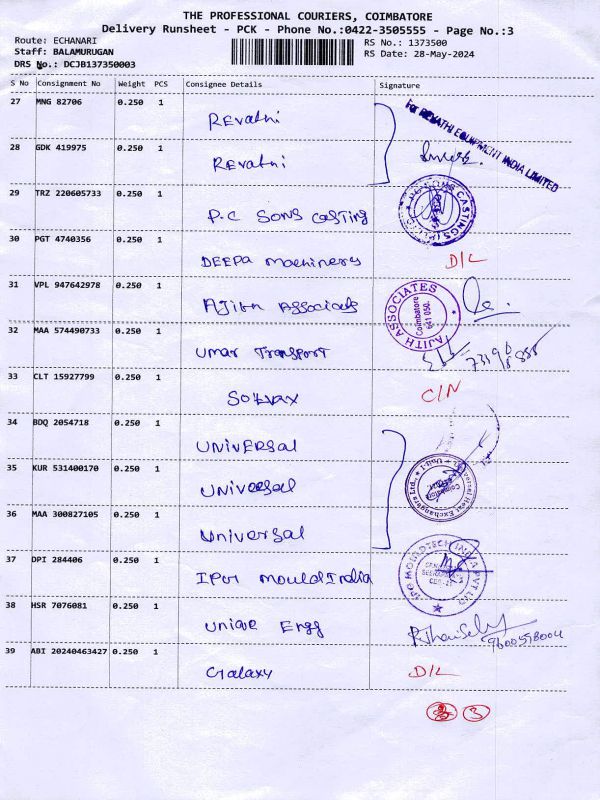 THE PROFESSIONAL COURIERS, COIMBATORE
Delivery Runsheet - PCK - Phone No.:0422-3505555 - Page No.:3
Route: ECHANARI
Staff: BALAMURUGAN
DRS No.: DCJB137350003
RS No.: 1373500
RS Date: 28-May-2024
S No Consignment No Weight PCS Consignee Details Signature
27 MNG 82706 0.250 1 Revathi
For REVATHI EQUIPMENT INDIA LIMITED
28 GDK 419975 0.250 1 Revathi
29 TRZ 220605733 0.250 1 P.C SONS Casting
30 PGT 4740356 0.250 1 DEEPA Machinery D/L
31 VPL 947642978 0.250 1 Ajith Associates
AJITH ASSOCIATES
Coimbatore
641 050.
32 MAA 574490733 0.250 1 Umar Transport
33 CLT 15927799 0.250 1 C/N
34 BDQ 2054718 0.250 1 UNIVERSAL
35 KUR 531400170 0.250 1 Universal
Universal Heat Exchangers Ltd., Unit-1
Coimbatore
36 MAA 300827105 0.250 1 Universal
37 DPI 284406 0.250 1 Mould India
38 HSR 7076081 0.250 1 Unique Engg
9600598004
39 ABI 20240463427 0.250 1 Galaxy D/L
3